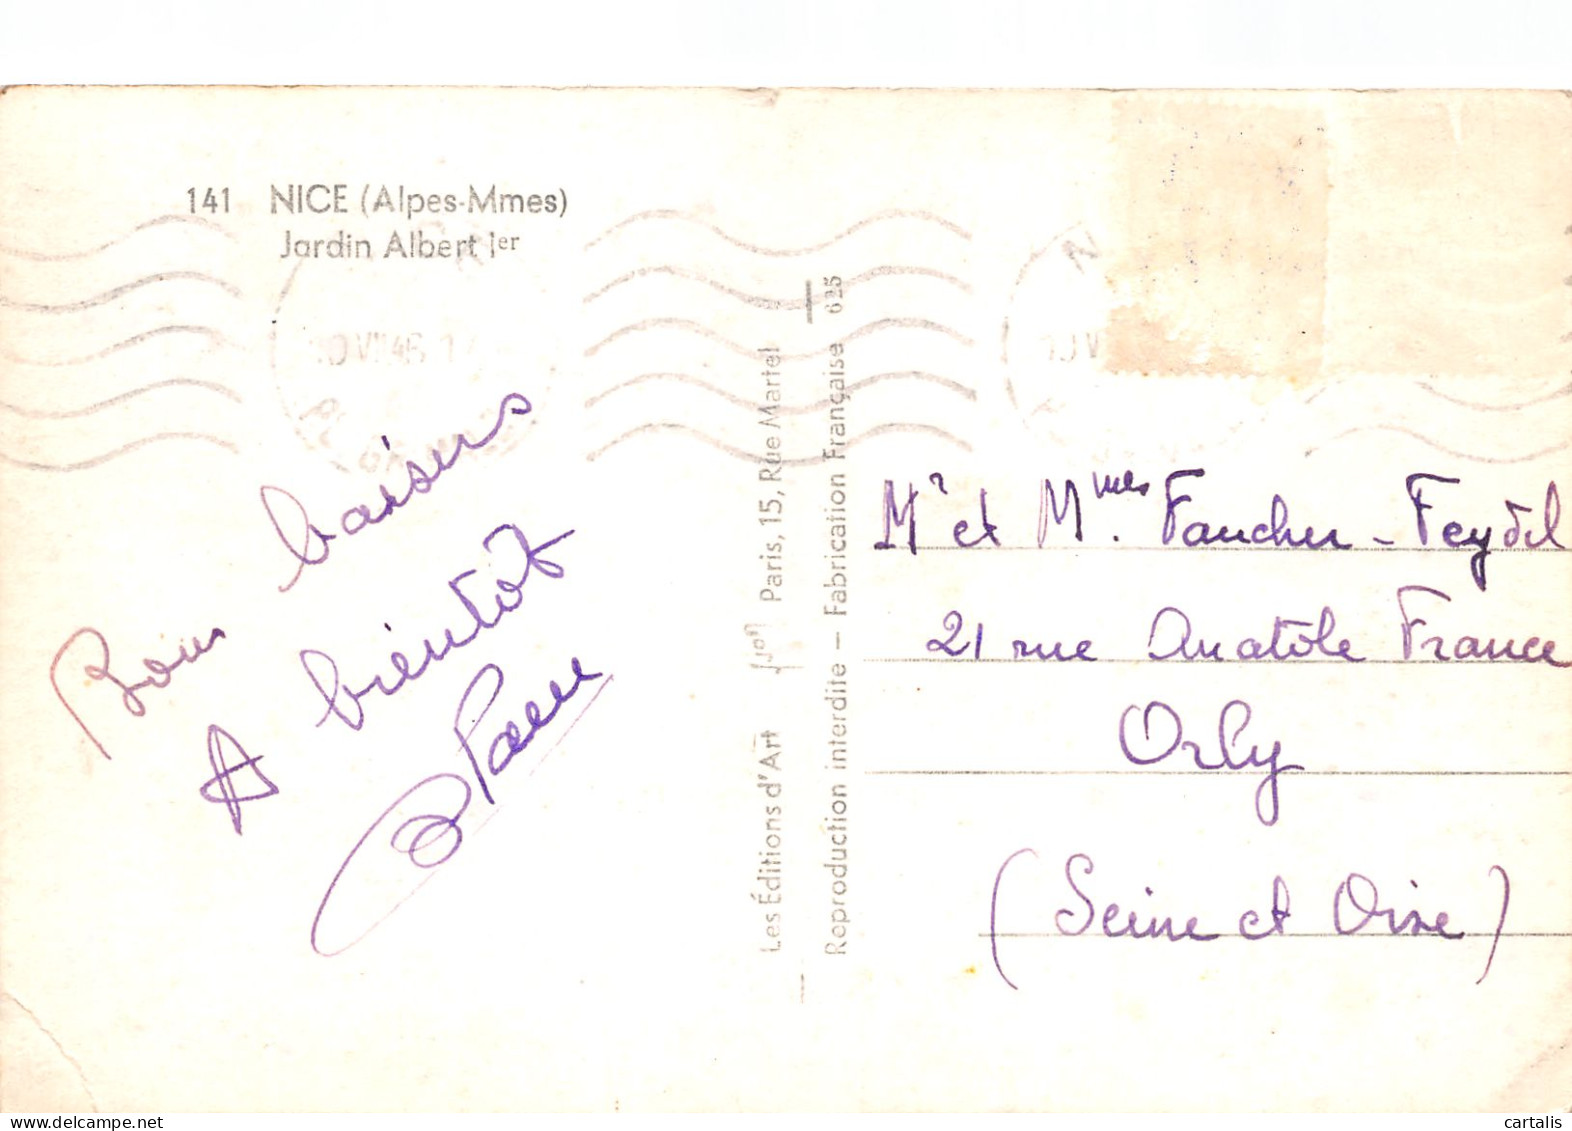 141 NICE (Alpes-Mmes)
Jardin Albert Ier
Bons baisers
A bientôt
Les Éditions d'Art Yvon Paris, 15, Rue Martel
Reproduction interdite — Fabrication Française 625
Mr et Mmes Faucher - Feydel
21 rue Anatole France
Orly
(Seine et Oise)
cartalis